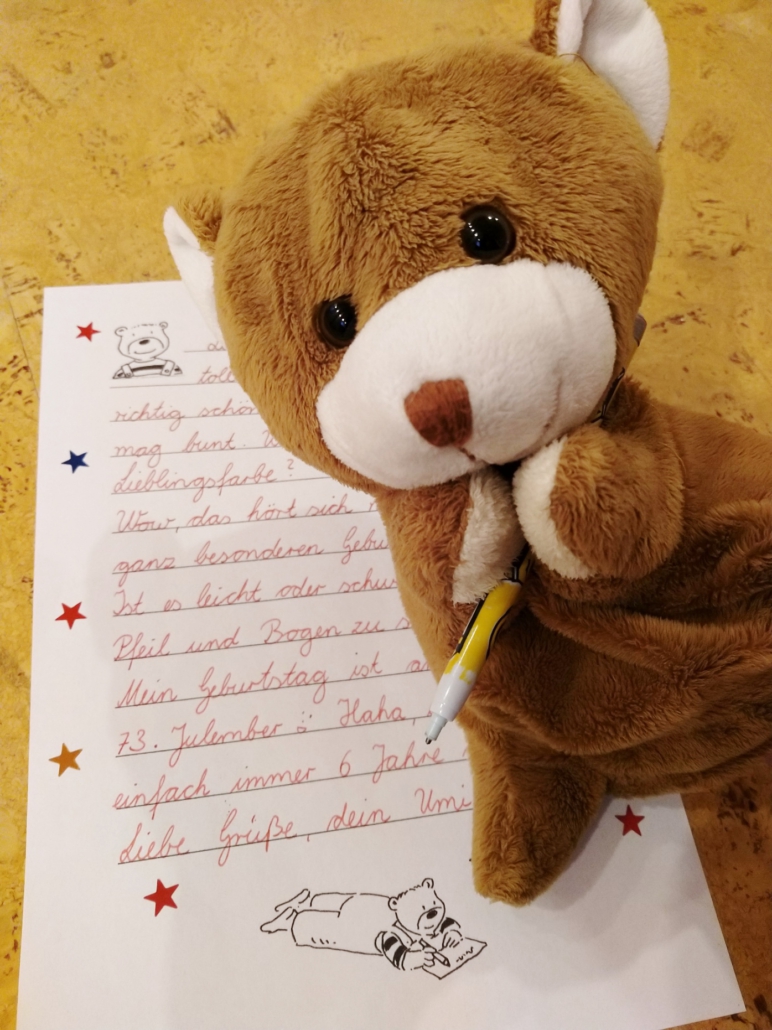 toll
richtig schön
mag bunt.
Lieblingsfarbe?
Wow, das hört sich
ganz besonderen
Ist es leicht oder
Pfeil und Bogen zu
Mein Geburtstag ist
73. Julember Haha,
einfach immer 6 Jahre
Liebe Grüße, dein Umi